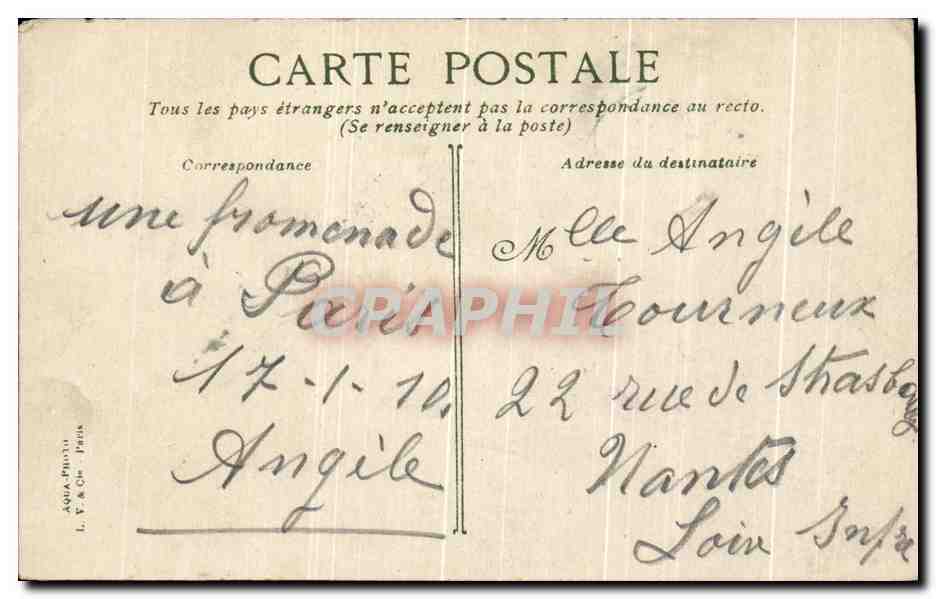 CARTE POSTALE
Tous les pays étrangers n'acceptent pas la correspondance au recto.
(Se renseigner à la poste)
Correspondance
une promenade
à Paris
17-1-10.
Angèle
AQUA-PHOTO
L. V. & Cie Paris
Adresse du destinataire
Mlle Angèle
Tourneux
22 rue de Strasbg
Nantes
Loire Infre
CPAPHIL